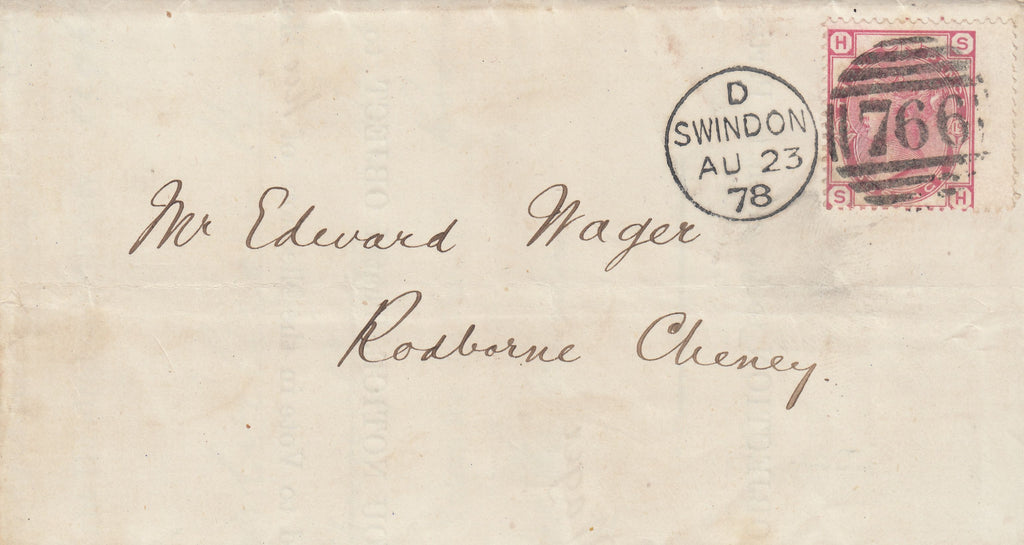 H S
D
SWINDON
AU 23
78
766
S H
Mr Edward Wager
Rodborne Cheney.